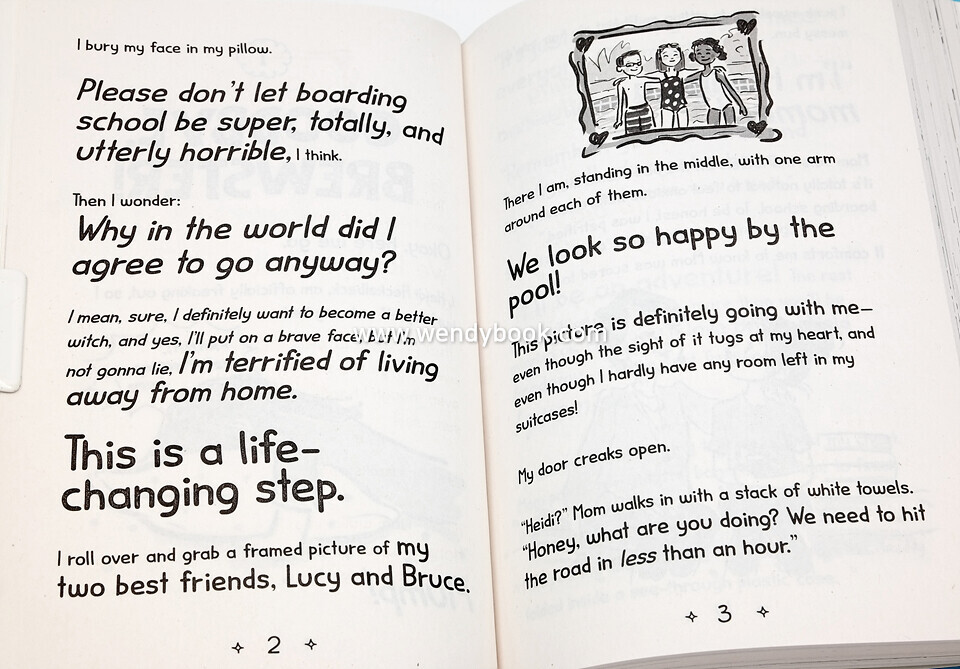 I bury my face in my pillow.
Please don't let boarding
school be super, totally, and
utterly horrible, I think.
Then I wonder:
Why in the world did I
agree to go anyway?
I mean, sure, I definitely want to become a better
witch, and yes, I'll put on a brave face, but I'm
not gonna lie, I'm terrified of living
away from home.
This is a life-
changing step.
I roll over and grab a framed picture of my
two best friends, Lucy and Bruce.
2
There I am, standing in the middle, with one arm
around each of them.
We look so happy by the
pool!
This picture is definitely going with me—
even though the sight of it tugs at my heart, and
even though I hardly have any room left in my
suitcases!
My door creaks open.
"Heidi?" Mom walks in with a stack of white towels.
"Honey, what are you doing? We need to hit
the road in less than an hour."
3
www.wendybook.com